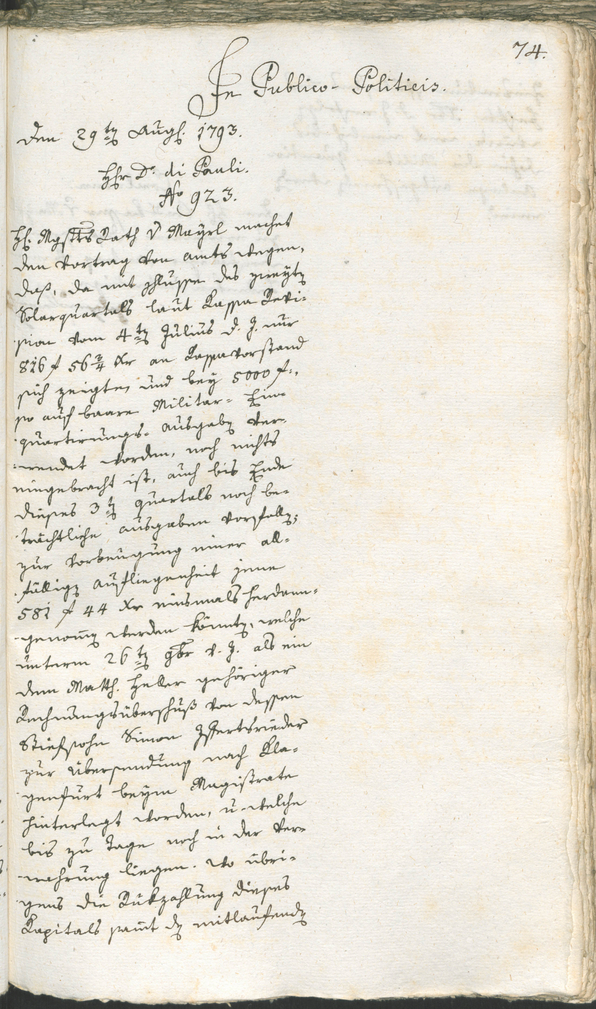 74.
In Publico-Politicis.
Den 29ten Augst 1793.
Hhr Dr. di Pauli.
No 923.
H. Mgstts Rath v Mayrl machet
den Vortrag von amts wegen,
daß, da mit schlusse des zweyten
Solarquartals laut Kassa Revi-
sion vom 4ten Julius d. J. nur
816 f 56 Xr an Kassavorstand
sich zeigte, und bey 5000 f.,
so auf baare Militar-Ein-
quartirungs-Ausgaben ver-
wendet worden, noch nichts
eingebracht ist, auch bis Ende
dieses 3ten Quartals noch be-
trächtliche Ausgaben vorfallen;
zur Vorbeugung einer all-
fälligen aufliegenheit jene
581 f 44 Xr einsmals herdann-
genommen werden könnten, welche
unterm 26ten 9br v. J. als ein
dem Matth. Heller gehöriger
Rechnungsüberschuß von dessen
Stiefsohn Simon
zur Übersendung nach Kla-
genfurt beym Magistrate
hinterlegt worden, u. welche
bis zu Tage noch in der Ver-
wahrung liegen. Wo übri-
gens die Rükzahlung dieses
Kapitals samt den mitlaufenden